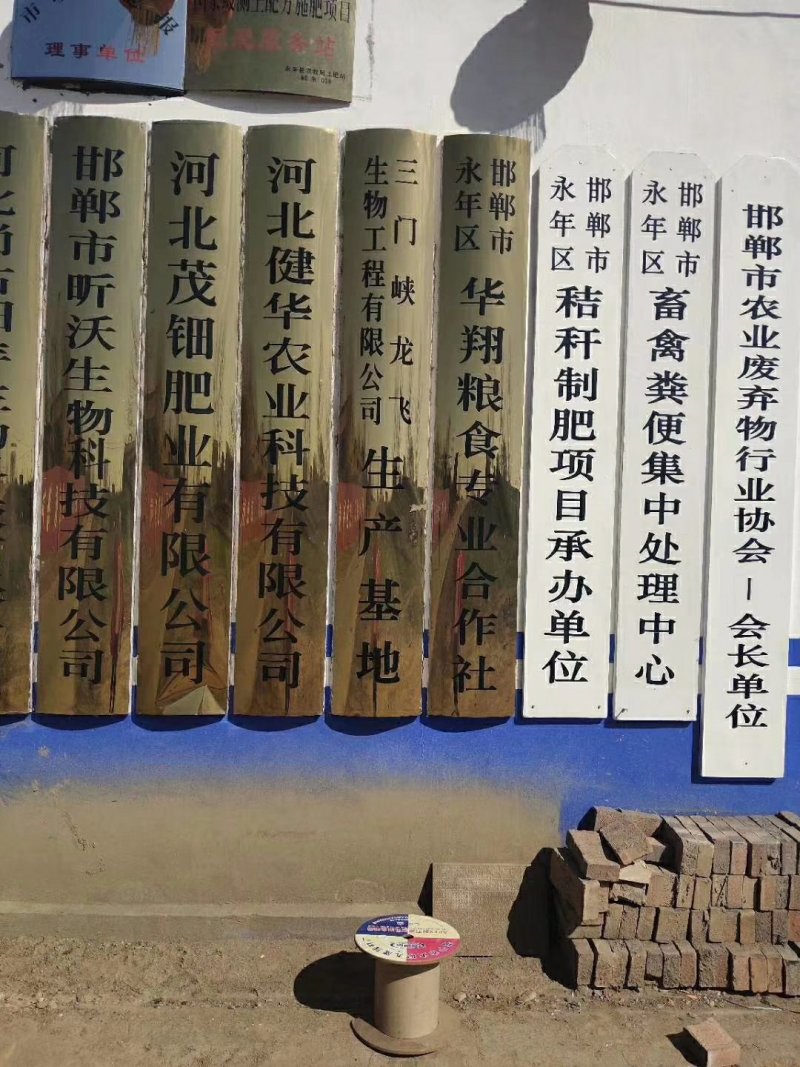 理事单位
国家级测土配方施肥项目
邯郸市昕沃生物科技有限公司
河北茂钿肥业有限公司
河北健华农业科技有限公司
三门峡龙飞
生物工程有限公司
生产基地
邯郸市
永年区
华翔粮食专业合作社
邯郸市
永年区
秸秆制肥项目承办单位
邯郸市
永年区
畜禽粪便集中处理中心
邯郸市农业废弃物行业协会—会长单位